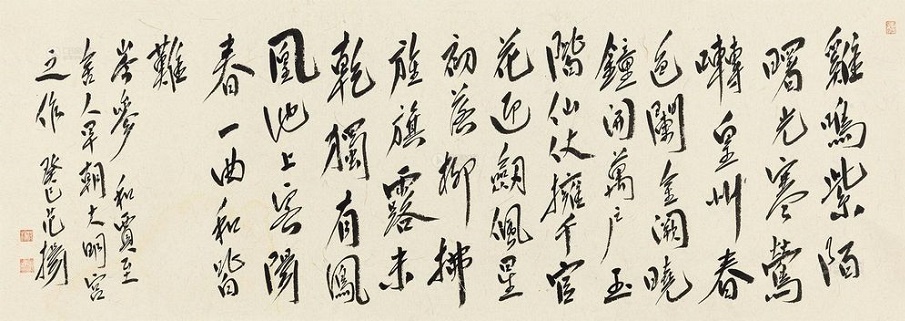 雞鳴紫陌
曙光寒鶯
囀皇州春
色闌金闕曉
鐘開萬戶玉
階仙仗擁千官
花迎劍佩星
初落柳拂
旌旗露未
乾獨有鳳
凰池上客陽
春一曲和皆
難
岑參 和賈至
舍人早朝大明宮
之作 癸巳范揚